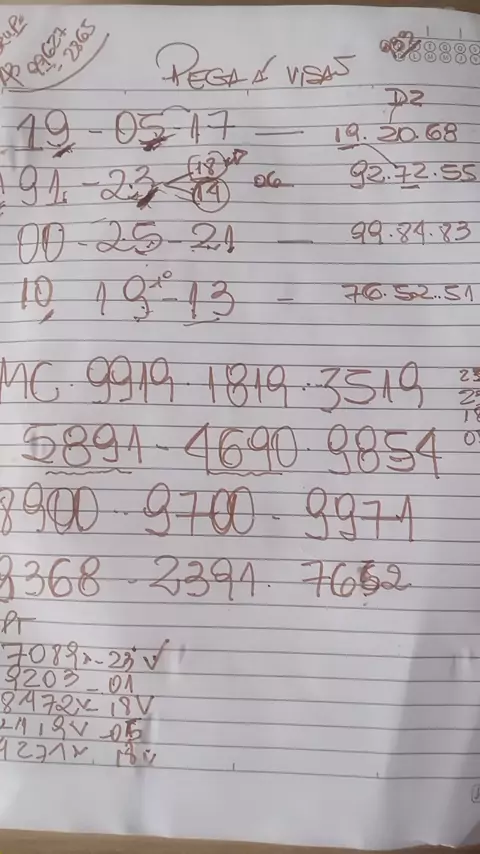 99627
2865
PEGA A VISÃO
DZ
19 - 05 - 17 — 19.20.68
91 - 23 18 14 06 92.72.55
00 - 25 - 21 — 99.84.83
10 19 - 13 - 76.52.51
MC. 9919.1819.3519
5891 - 4690.9854
8900 - 9700 - 9971
9368 - 2391. 7652
PT
7089 - 23 ✓
9203 - 01
8472 18 V
2419 V - 05
4271 18